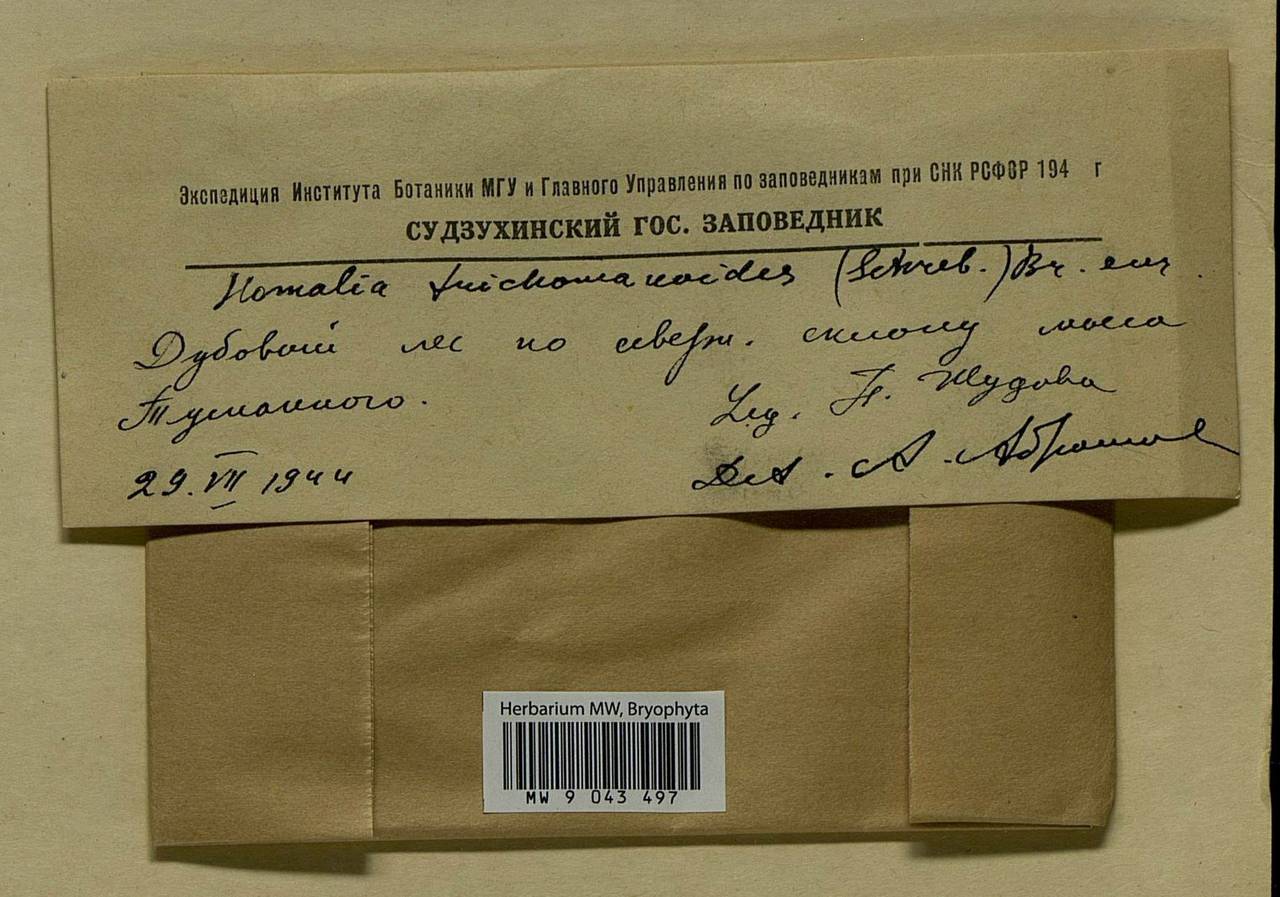 Экспедиция Института Ботаники МГУ и Главного Управления по заповедникам при СНК РСФСР 194 г
СУДЗУХИНСКИЙ ГОС. ЗАПОВЕДНИК
Homalia trichomanoides (Schreb.) Br. eur.
Дубовый лес по северн. склону мыса
Туманного.
Leg. Н. Жудова
29. VII 1944
Det. А. Абрамова
Herbarium MW, Bryophyta
MW 9 043 497